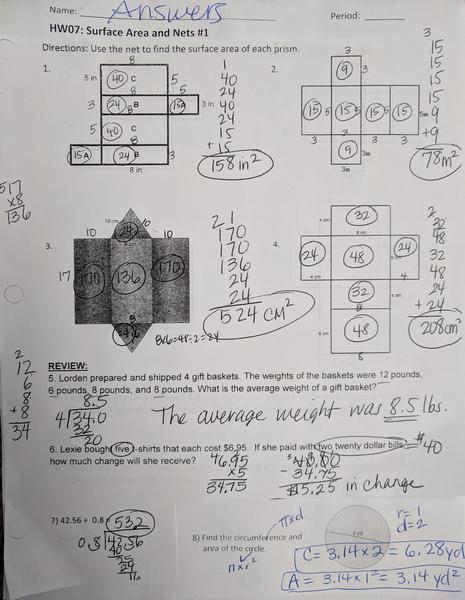 Name: Answers Period:
HW07: Surface Area and Nets #1
Directions: Use the net to find the surface area of each prism.
1.
8
5 in 40 C 5
3 24 B 15A 3 in
8
5 40 C
8
15 A 24 B 3
8 in
1
40
24
40
24
15
+ 15
158 in²
2.
3
9 3
15 5 15 5 15 5 15 5m
3 3 3 3
9 3m
3m
3
15
15
15
15
9
+9
78m²
517
x8
136
3.
10 cm 10
24
10 8 cm 10
17 170 136 170
8
24
8x6=48÷2=24
2 1
170
170
136
24
24
524 cm²
4.
4 cm 32
8 cm
24 48 24
4 cm 4
32 4 cm
8
6 cm 48
8
2
32
48
32
48
24
+ 24
208cm²
REVIEW:
5. Lorden prepared and shipped 4 gift baskets. The weights of the baskets were 12 pounds,
6 pounds, 8 pounds, and 8 pounds. What is the average weight of a gift basket?
2
12
6
8
+ 8
34
8.5
4 34.0
32
20
The average weight was 8.5 lbs.
6. Lexie bought five t-shirts that each cost $6.95. If she paid with two twenty dollar bills, = $40
how much change will she receive?
46.95
x5
34.75
- 34.75
$5.25 in change
7) 42.56 ÷ 0.8 = 532
0.8 42.56
40
25
24
16
8) Find the circumference and
area of the circle.
πxd
πxr²
2 yd
r=1
d=2
C = 3.14 x 2 = 6.28yd
A = 3.14 x 1² = 3.14 yd²